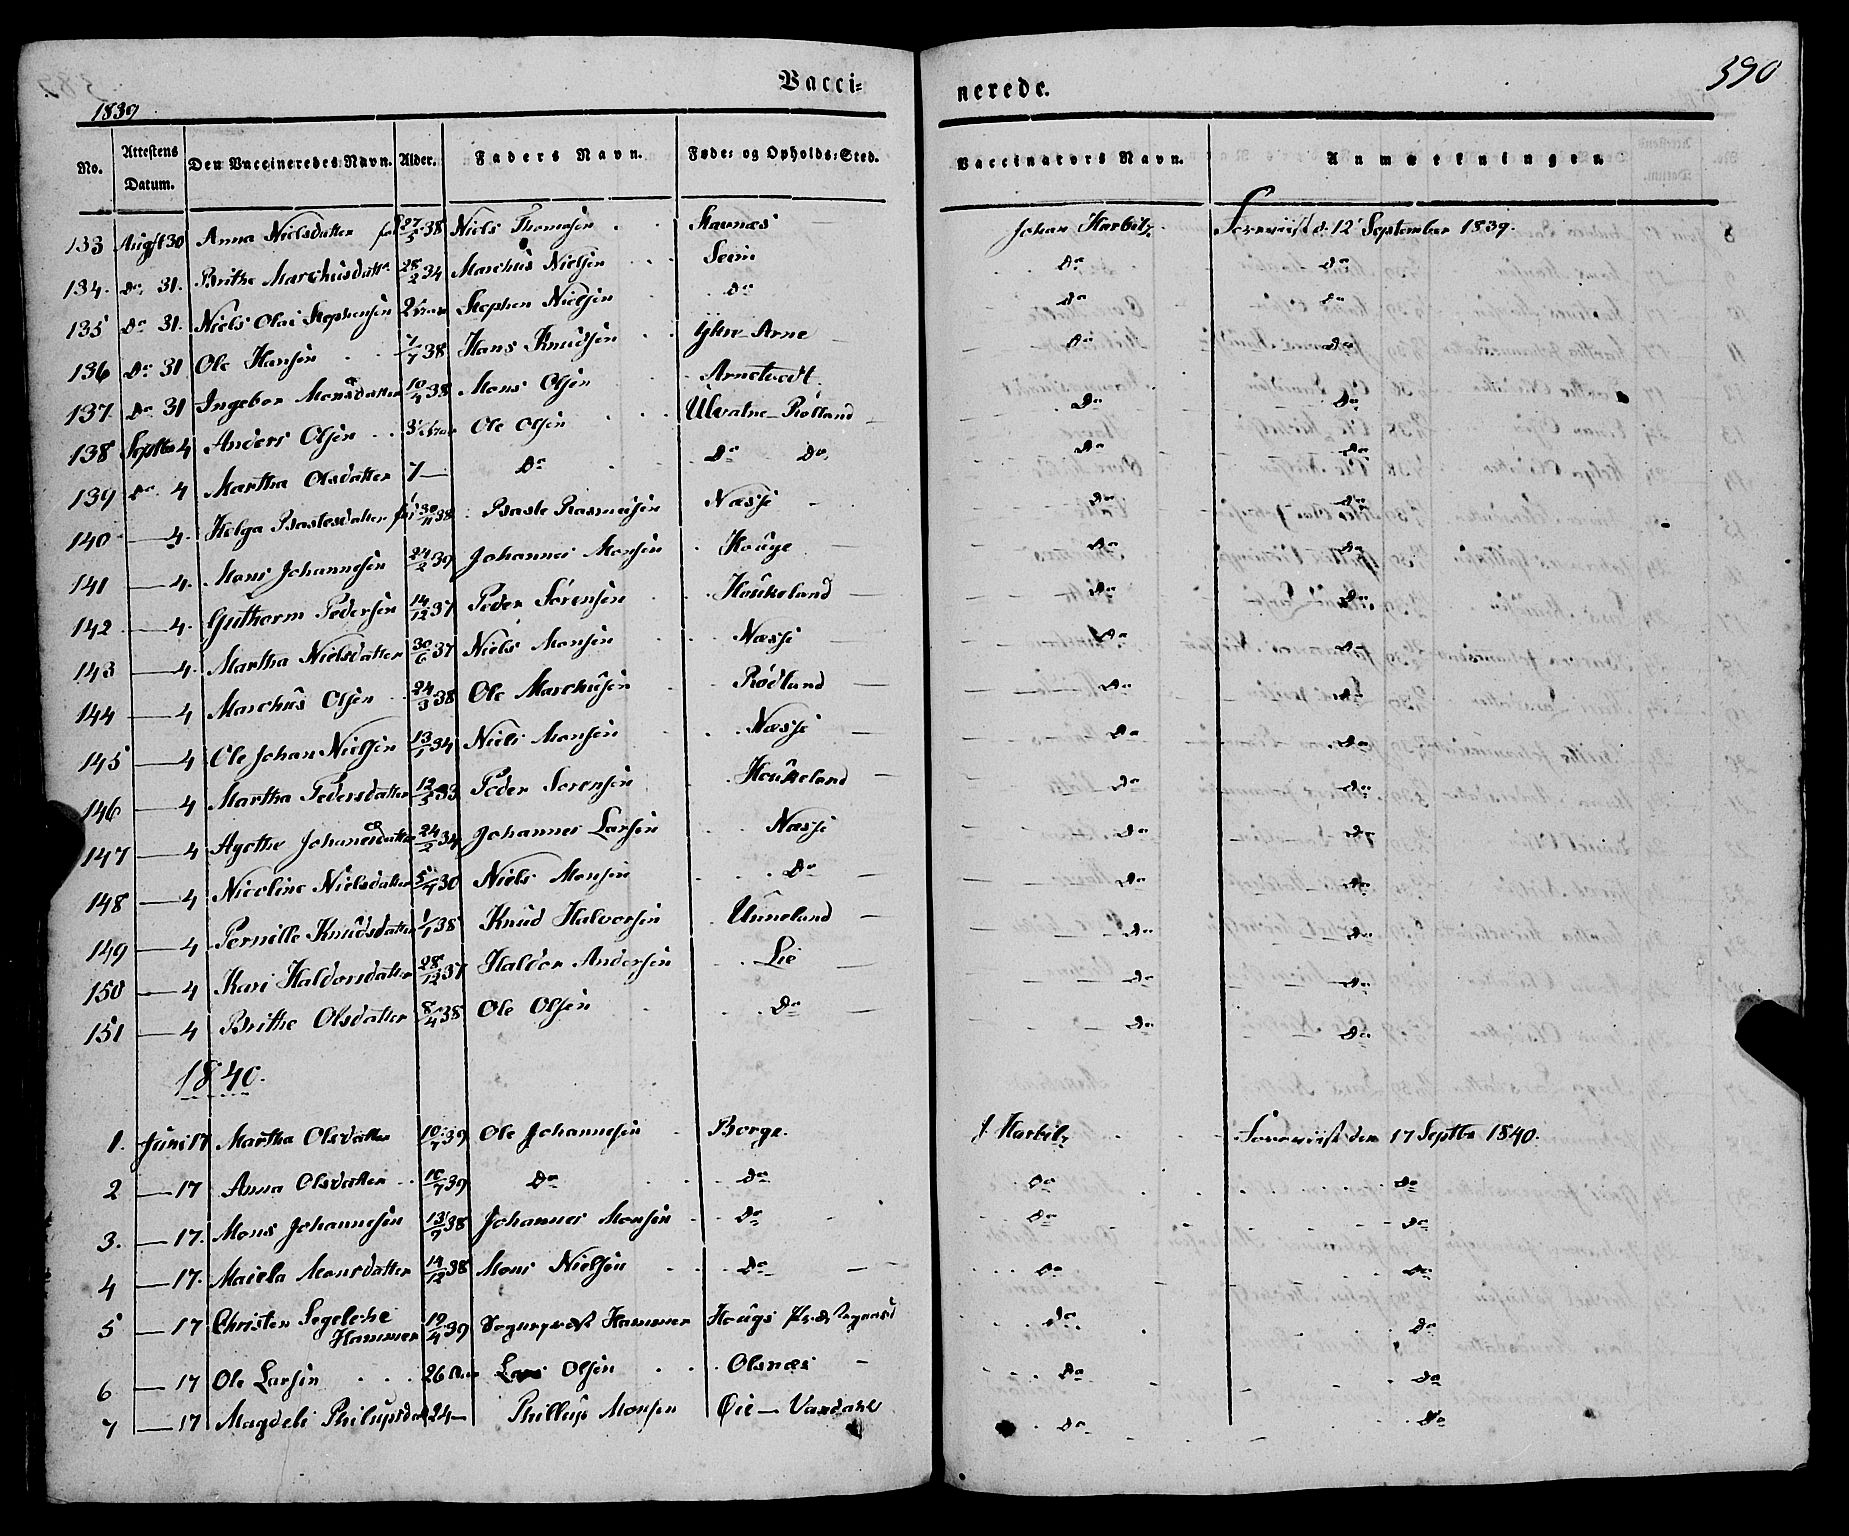 Vacci= nerede. 390
1839
No. Attestens Datum. Den Vaccineredes Navn. Alder. Faders Navn. Føde= og Opholds=Sted. Vaccinators Navn. Anmærkninger.
133 Augst 30 Anna Nielsdatter 27/5 38 Niels Thomesen Johan Harbitz Foreviist d. 12 September 1839.
134. do 31. Brithe Marchusdatter 28/2 34 Marchus Nielsen Seim do do
135 do 31. Niels Olai Stephensen Stephen Nielsen do do do
136 do 31 Ole Hansen 1/7 38 Hans Knudsen Ytre Arne do do
137 do 31 Ingebor Monsdatter 10/4 38 Mons Olsen Arnetvedt do do
138 Septbr 4 Anders Olsen Ole Olsen Ulvatne Rølland do do
139 do 4 Martha Olsdatter 7 — do do do do do
140 — 4. Helga Bastesdatter 30/11 38 Baste Rasmussen Næsse do do
141 — 4. Mons Johannesen 24/2 39 Johannes Monsen Houge do do
142 — 4. Guthorm Pedersen 14/12 37 Peder Sørensen Houkeland do do
143 — 4. Martha Nielsdatter 30/6 37 Niels Monsen Næsse do do
144 — 4 Marchus Olsen 24/3 38 Ole Marchusen Rødland do do
145 — 4 Ole Johan Nielsen 13/1 34 Niels Monsen Næsse do do
146 — 4 Martha Pedersdatter 12/5 33 Peder Sørensen Houkeland do do
147 — 4 Agethe Johannesdatter 24/2 34 Johannes Larsen Næsse do do
148 — 4 Nicoline Nielsdatter 5/7 30 Niels Monsen do do do
149 — 4 Pernille Knudsdatter 1/1 38 Knud Halvorsen Unneland do do
150 — 4 Kari Haldorsdatter 28/12 37 Haldor Andersen Lie do do
151 — 4 Brithe Olsdatter 8/4 38 Ole Olsen do do do
1840.
1. Juni 17 Martha Olsdatter 10/7 39 Ole Johannesen Borge. J. Harbitz Foreviist den 17 Septbr 1840.
2 — 17 Anna Olsdatter 10/7 39 do do do do
3. — 17. Mons Johannesen 13/7 38 Johannes Monsen do do do
4 — 17. Maiela Monsdatter 14/12 38 Mons Nielsen do do do
5 — 17 Christen Segelcke 19/4 39 Sogneprest Hammer Hougs do do
Hammer
6 — 17 Ole Larsen 26 Lars Olsen Olsnæs do do
7 — 17 Magdeli Philupsdatter 24 — Phillup Monsen Øie — Vardahl do do